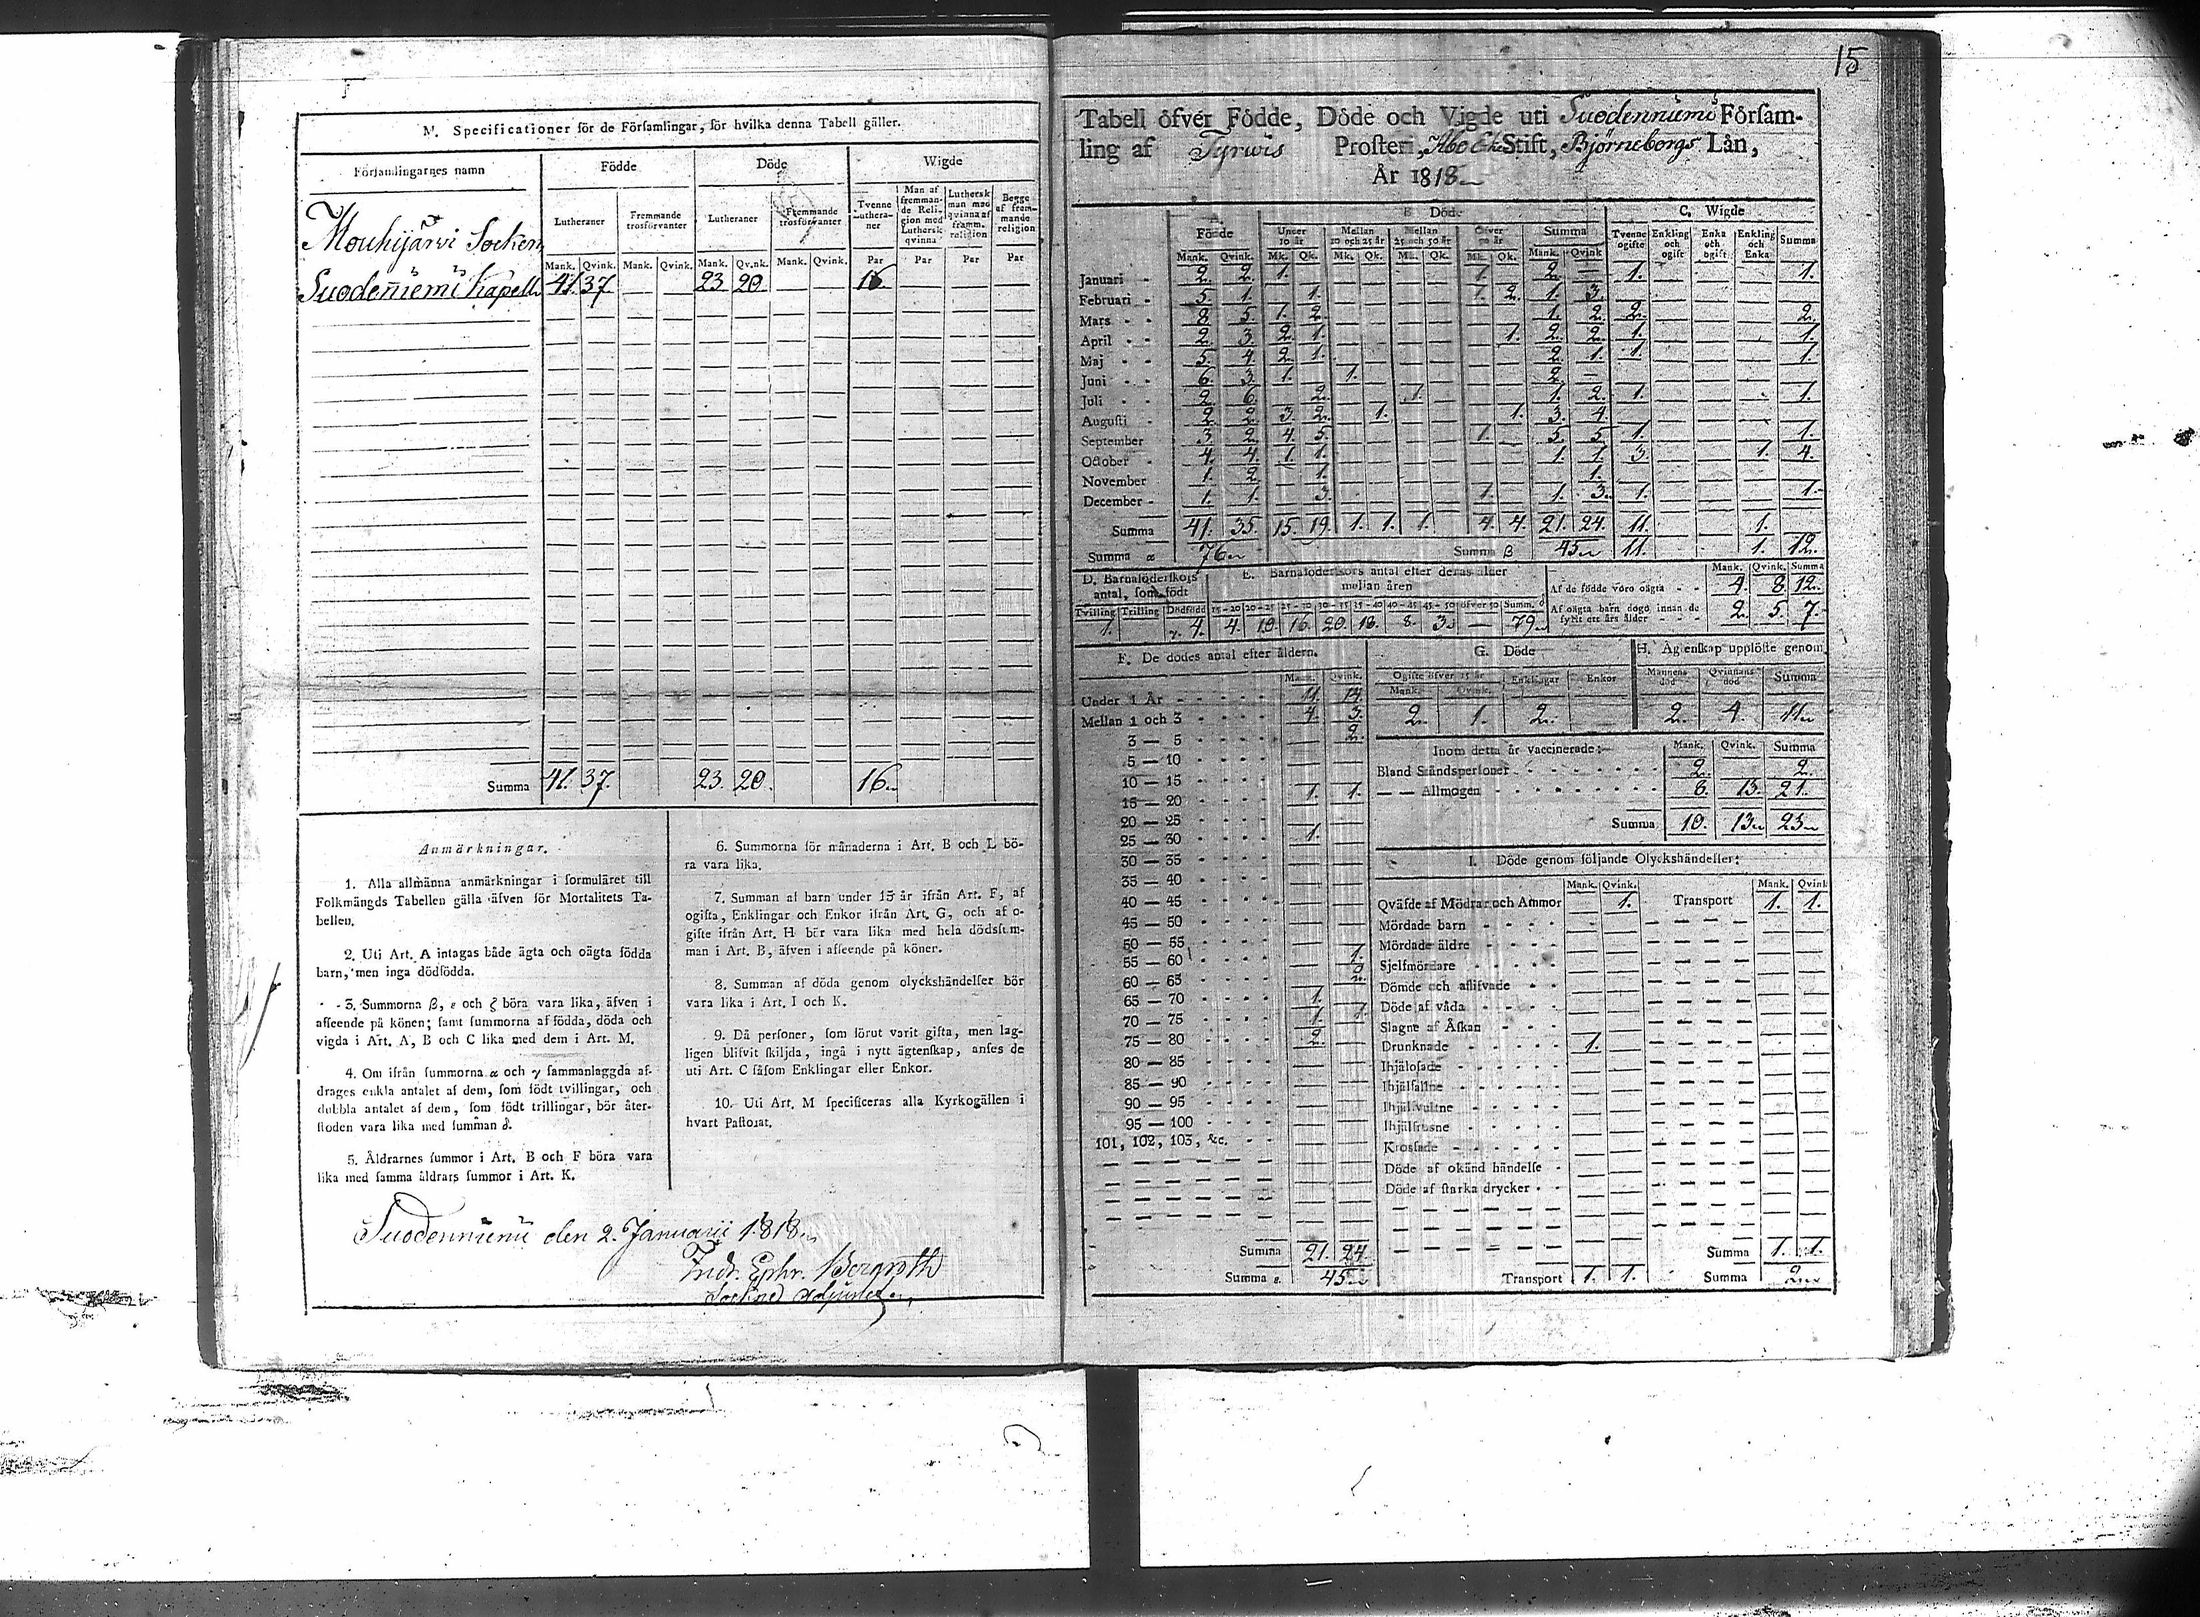 M. Specificationer för de Församlingar, för hvilka denna Tabell gäller.
Församlingarnes namn Födde Döde Wigde
Lutheraner Fremmande trosförvanter Lutheraner Fremmande trosförvanter Tvenne Lutheraner Man af fremmande Religion med Luthersk qvinna Luthersk man med qvinna af framm. religion Begge af fremmande religion
Mank. Qvink. Mank. Qvink. Mank. Qvink. Mank. Qvink. Par Par Par Par
Mouhijärvi Socken
Suodeniemi Kapell 41. 37 23 20 16
Summa 41. 37. 23. 20. 16
Anmärkningar.
1. Alla allmänna anmärkningar i formuläret till
Folkmängds Tabellen gälla äfven för Mortalitets Ta-
bellen.
2. Uti Art. A intagas både ägta och oägta födda
barn, men inga dödfödda.
3. Summorna β, ε och ζ böra vara lika, äfven i
afseende på könen; samt summorna af födda, döda och
vigda i Art. A, B och C lika med dem i Art. M.
4. Om ifrån summorna α och γ sammanlaggda af-
drages enkla antalet af dem, som födt tvillingar, och
dubbla antalet af dem, som födt trillingar, bör åter-
stoden vara lika med summan δ.
5. Åldrarnes summor i Art. B och F böra vara
lika med samma åldrars summor i Art. K.
6. Summorna för månaderna i Art. B och L bö-
ra vara lika.
7. Summan af barn under 15 år ifrån Art. F, af
ogifta, Enklingar och Enkor ifrån Art. G, och af o-
gifte ifrån Art. H bör vara lika med hela dödssum-
man i Art. B, äfven i afseende på köner.
8. Summan af döda genom olyckshändelser bör
vara lika i Art. I och K.
9. Då personer, som förut varit gifta, men lag-
ligen blifvit skiljda, ingå i nytt ägtenskap, anses de
uti Art. C såsom Enklingar eller Enkor.
10. Uti Art. M specificeras alla Kyrkogällen i
hvart Pastorat.
den 2. Januarii 1818
15
Tabell öfver Födde, Döde och Vigde uti Suodenniemi Församl-
ling af Tyrwis Prosteri, Åbo Stift, Björneborgs Län,
År 1818
A. Födde B. Döde C. Wigde
Under 10 år Mellan 10 och 25 år Mellan 25 och 50 år Öfver 50 år Summa Tvenne ogifte Enkling och ogift Enka och ogift Enkling och Enka Summa
Mank. Qvink. Mk. Qk. Mk. Qk. Mk. Qk. Mk. Qk. Mank. Qvink
Januari 2. 2. 1. 1. 2. 1. 1.
Februari 5. 1. 1. 1. 2. 1. 3.
Mars 8. 5. 1. 2. 1. 2. 2. 2.
April 2. 3. 2. 1. 1. 2. 2. 1. 1.
Maj 5. 4. 2. 1. 2. 1. 1. 1.
Juni 6. 3. 1. 1. 2.
Juli 2. 6. 2. 1. 1. 2. 1. 1.
Augusti 2. 2. 3. 2. 1. 1. 3. 4.
September 3. 2. 4. 5. 1. 5. 5. 1. 1.
October 4. 4. 1. 1. 1. 1. 3. 1. 4.
November 1. 2. 1. 1.
December 1. 1. 3. 1. 1. 3. 1. 1.
Summa 41. 35. 15. 19. 1. 1. 1. 4. 4. 21. 24. 11. 1.
Summa α 76 Summa β 45 11. 1. 12.
D. Barnaföderskors antal, som födt
Tvilling Trilling Dödfödd
1. γ. 4.
E. Barnaföderskors antal efter deras ålder mellan åren
15-20 20-25 25-30 30-35 35-40 40-45 45-50 öfver 50 Summ. δ
4. 10. 16. 20. 18. 8. 3. 79
Mank. Qvink. Summa
Af de födde voro oägta 4. 8. 12.
Af oägta barn dogo innan de fyllt ett års ålder 2. 5. 7.
F. De dödes antal efter åldern.
Mank. Qvink.
Under 1 År 11. 14.
Mellan 1 och 3 4. 3.
3 — 5 2.
5 — 10
10 — 15
15 — 20 1. 1.
20 — 25
25 — 30 1.
30 — 35
35 — 40
40 — 45
45 — 50
50 — 55
55 — 60 1.
60 — 65 2.
65 — 70 1.
70 — 75 1. 1.
75 — 80 2.
80 — 85
85 — 90
90 — 95
95 — 100
101, 102, 103, &c.
Summa 21. 24
Summa ε. 45
G. Döde
Ogifte öfver 15 år Enklingar Enkor
Mank. Qvink.
2. 1. 2.
H. Ägtenskap upplöste genom
Mannens död Qvinnans död Summa
2. 4.
Inom detta år vaccinerade: Mank. Qvink. Summa
Bland Ståndspersoner 2. 2.
— — Allmogen 8. 13. 21.
Summa 10. 13 23
I. Döde genom följande Olyckshändelser:
Mank. Qvink. Mank. Qvink
Qväfde af Mödrar och Ammor 1. Transport 1. 1.
Mördade barn
Mördade äldre
Sjelfmördare
Dömde och aflifvade
Döde af våda
Slagne af Åskan
Drunknade 1.
Ihjälosade
Ihjälfallne
Ihjälsvultne
Ihjälfrusne
Krossade
Döde af okänd händelse
Döde af starka drycker
Summa 1. 1.
Transport 1. 1. Summa 2